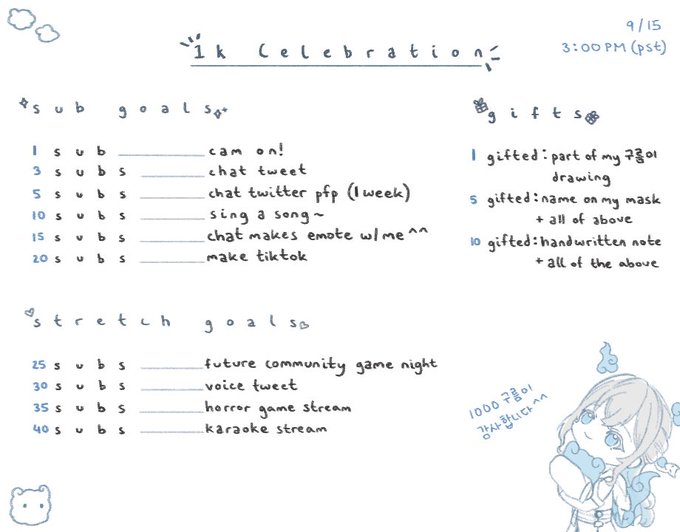 9/15
3:00 PM (pst)
1k Celebration
sub goals
1 sub cam on!
3 subs chat tweet
5 subs chat twitter pfp (1 week)
10 subs sing a song~
15 subs chat makes emote w/me ^^
20 subs make tiktok
gifts
1 gifted: part of my 구름이
drawing
5 gifted: name on my mask
+ all of above
10 gifted: handwritten note
+ all of the above
stretch goals
25 subs future community game night
30 subs voice tweet
35 subs horror game stream
40 subs karaoke stream
1000 구름이
감사합니다^^